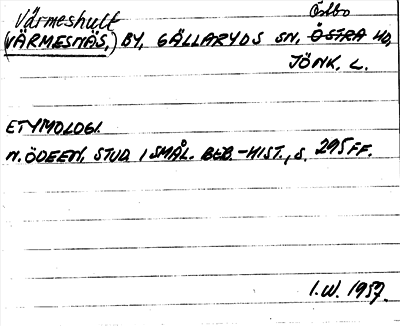 Värmeshult Östbo
(VÄRMESNÄS,) BY, GÄLLARYDS SN, ÖSTRA HD,
JÖNK. L.
ETYMOLOGI.
N. ÖDEEN, STUD. I SMÅL. BEB.-HIST., S. 295 FF.
I.W. 1957.